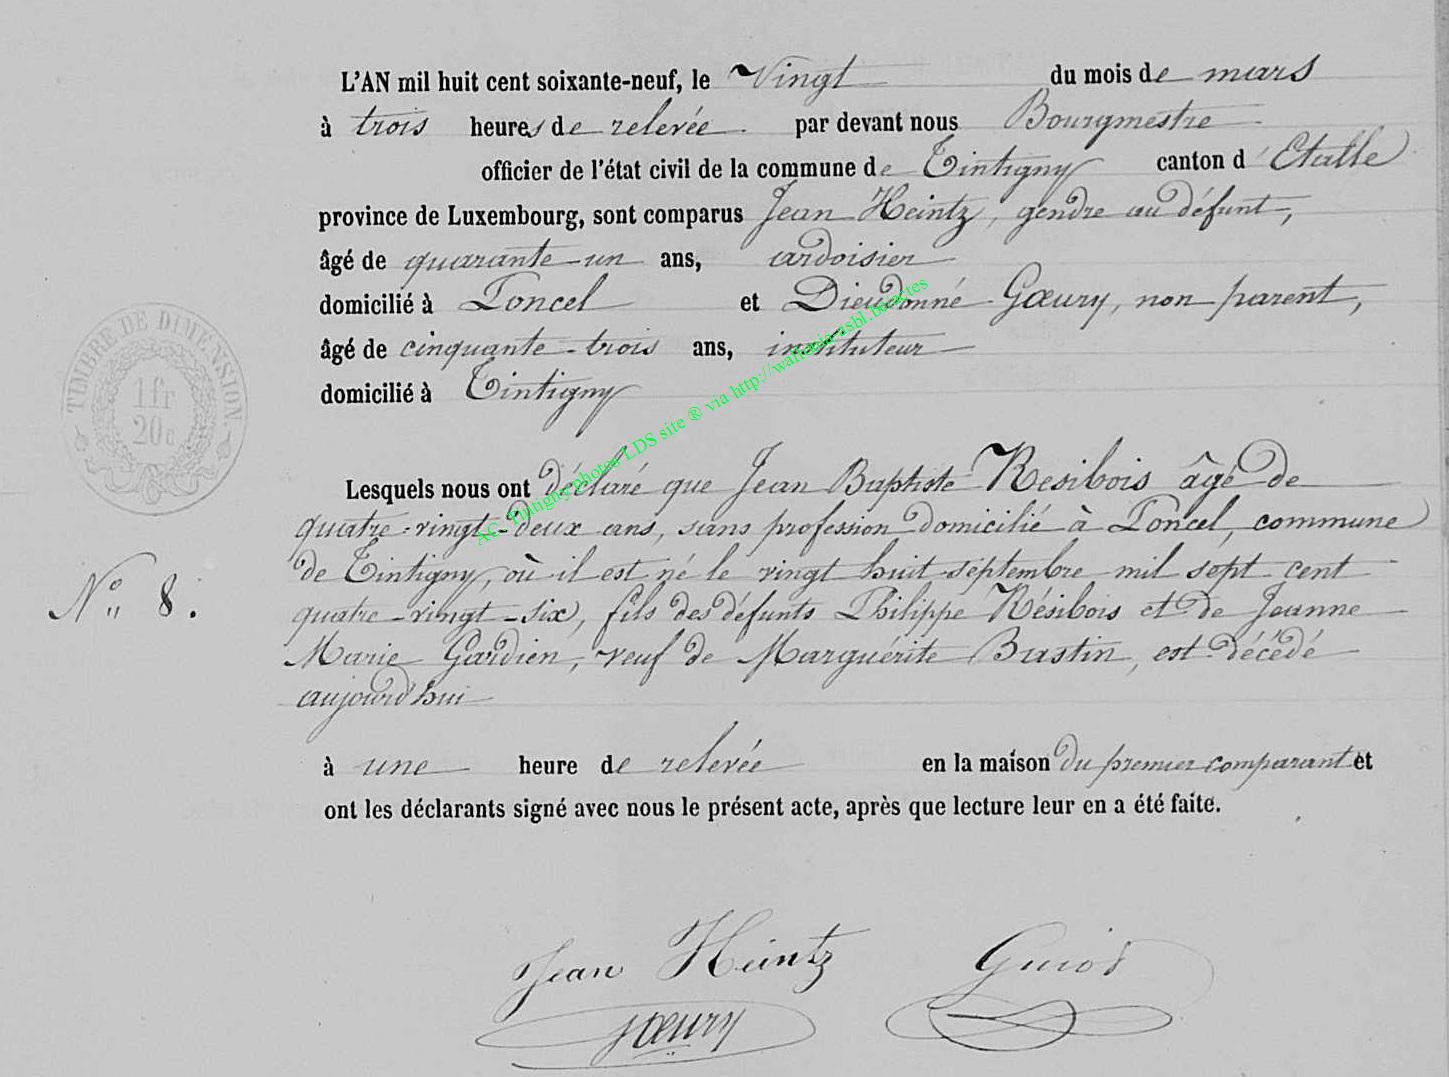 L'AN mil huit cent soixante-neuf, le Vingt du mois de mars
à trois heures de relevée par devant nous Bourgmestre
officier de l'état civil de la commune de Tintigny canton d'Etalle
province de Luxembourg, sont comparus Jean Heintz, gendre au défunt,
âgé de quarante-un ans, ardoisier
domicilié à Poncel et Dieudonné Gœury, non parent,
âgé de cinquante-trois ans, instituteur
domicilié à Tintigny
TIMBRE DE DIMENSION.
1 fr
20 c
Lesquels nous ont déclaré que Jean Baptiste Resibois âgé de
quatre-vingt-deux ans, sans profession domicilié à Poncel, commune
de Tintigny, où il est né le vingt huit septembre mil sept cent
N° 8.
quatre-vingt-six, fils des défunts Philippe Résibois et de Jeanne
Marie Gardien, veuf de Marguérite Bastin, est décédé
aujourd'hui
à une heure de relevée en la maison du premier comparant et
ont les déclarants signé avec nous le présent acte, après que lecture leur en a été faite.
Jean Heintz Guiot
Gœury
AC Tintigny photos LDS site ® via http://wallonia-asbl.be/actes